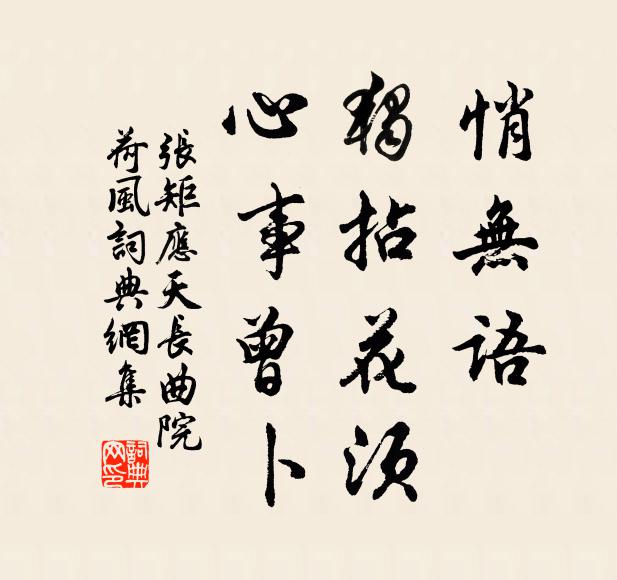 悄無語
獨拈花須
心事曾卜
張矩應天長曲院
荷風詞典網集
詞典
网印